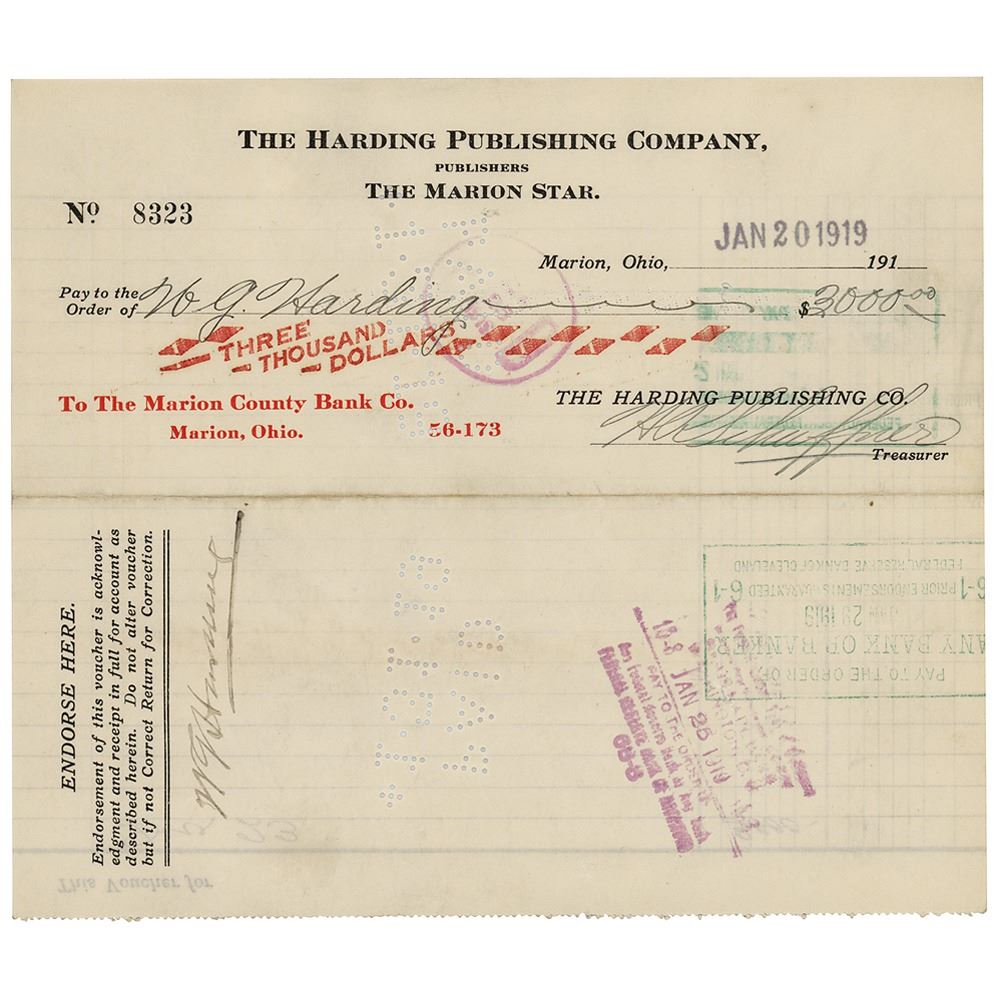 THE HARDING PUBLISHING COMPANY,
PUBLISHERS
THE MARION STAR.
Nº 8323
JAN 20 1919
Marion, Ohio, 191
Pay to the
Order of W G. Harding $3000.00
THREE
THOUSAND
DOLLARS
To The Marion County Bank Co. 56-173
Marion, Ohio.
THE HARDING PUBLISHING CO.
Treasurer
ENDORSE HERE.
Endorsement of this voucher is acknowl-
edgment and receipt in full for account as
described herein. Do not alter voucher
but if not Correct Return for Correction.
W G Harding
PAY TO THE ORDER OF
ANY BANK OR BANKER
JAN 29 1919
6-1 PRIOR ENDORSEMENTS GUARANTEED 6-1
FEDERAL RESERVE BANK OF CLEVELAND
JAN 25 1919
PAY TO THE ORDER OF
Any Federal Reserve Bank or Any Bank
FEDERAL RESERVE BANK OF RICHMOND
68-6
PAID
1-27-19
This Voucher for